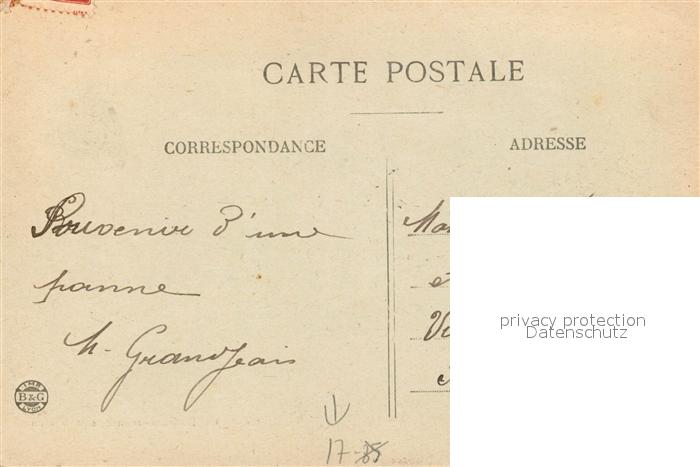 CARTE POSTALE
CORRESPONDANCE
ADRESSE
Souvenir d'une
panne
h. Grandjean
IMP.
B&G
LYON
17-
privacy protection
Datenschutz